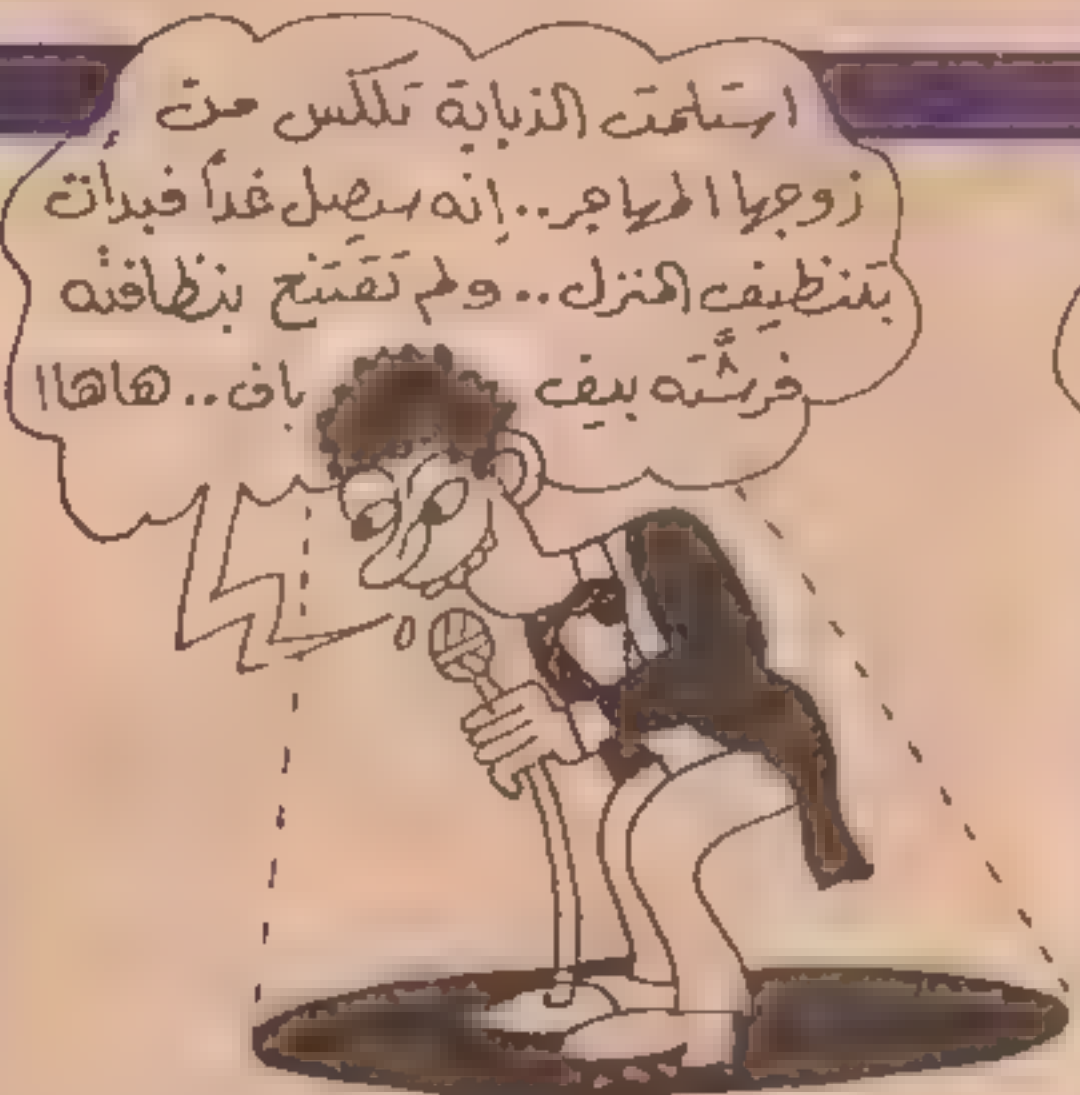 استلمت الذبابة تلكس من
زوجها المهاجر.. إنه سيصل غداً فبدأت
بتنظيف المنزل.. ولم تقتنع بنظافته
فرشّته بيف باف.. هاهاا